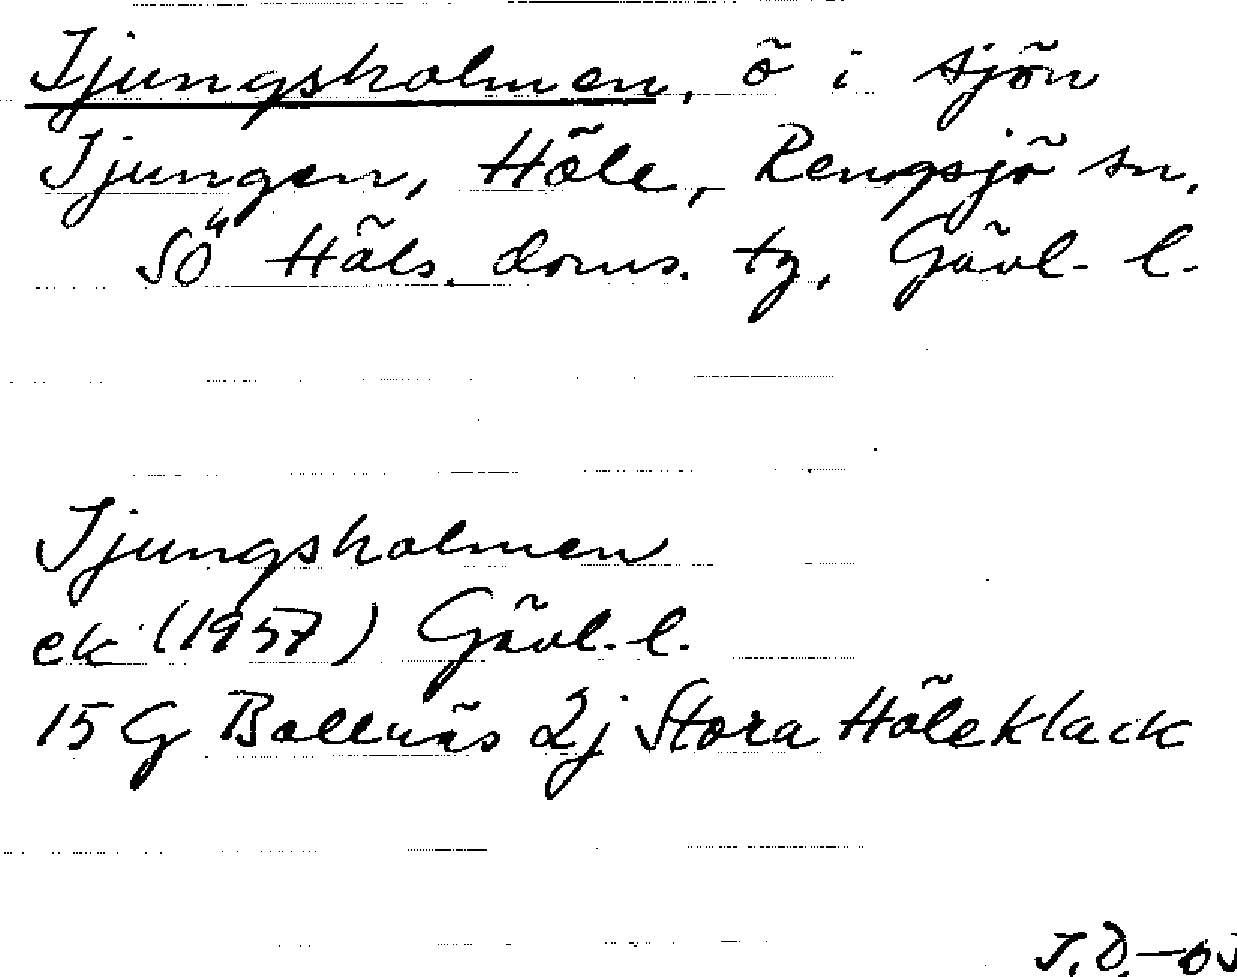 Tjungsholmen, ö i sjön
Tjungen, Höle, Rengsjö sn,
Sö Häls. doms. tg, Gävl. l.
Tjungsholmen
ek (1957) Gävl. l.
15 G Bollnäs 2j Stora Höleklack